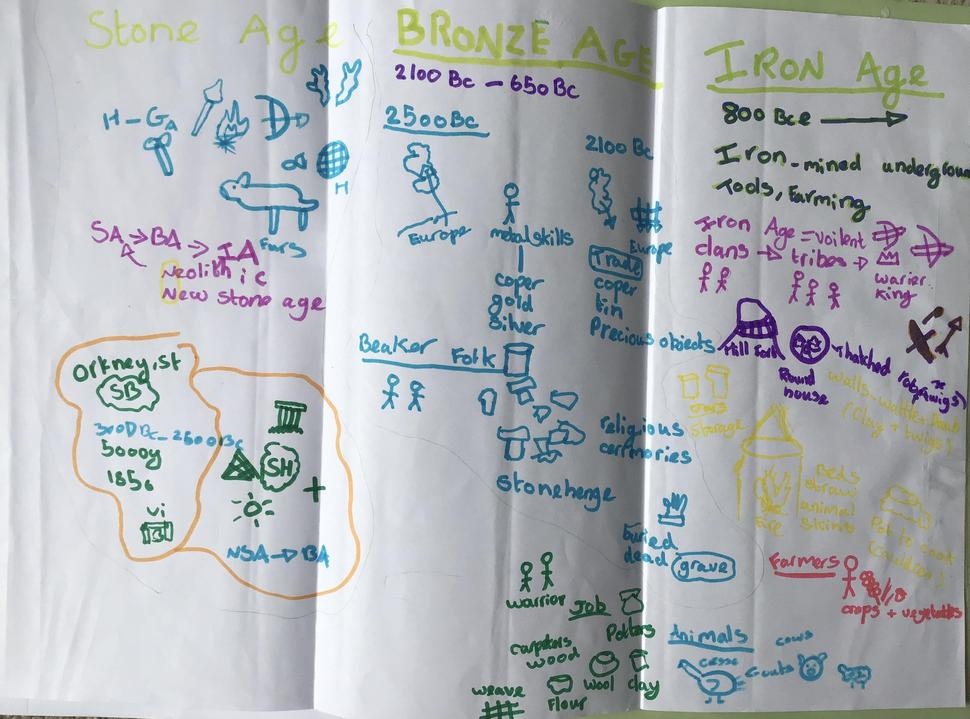 Stone Age
H-GA
H
Furs
SA → BA → IA
Neolithic
New stone age
Orkney, st
SB
3000Bc-2500Bc
5000y
1856
Vi
SH
+
NSA → BA
BRONZE AGE
2100 Bc - 650 Bc
2500Bc
Europe
metal skills
coper
gold
silver
2100 Bc
Europe
Trade
coper
tin
Precious objects
Beaker Folk
religious
cermories
stonehenge
buried
dead grave
warrior
Job
Potters
wood
wool
clay
weave
Flour
IRON Age
800 Bce →
Iron-mined undergroun
Tools, Farming
Iron Age = voilent
clans → tribes →
warier
king
Hill Fort
Round
house
thatched
walls-wattle
(Clay + twigs)
Storage
Fire
Beds
straw
animal
skins
Pot to cook
Farmers
crops + vegetables
Animals
cows
Goats